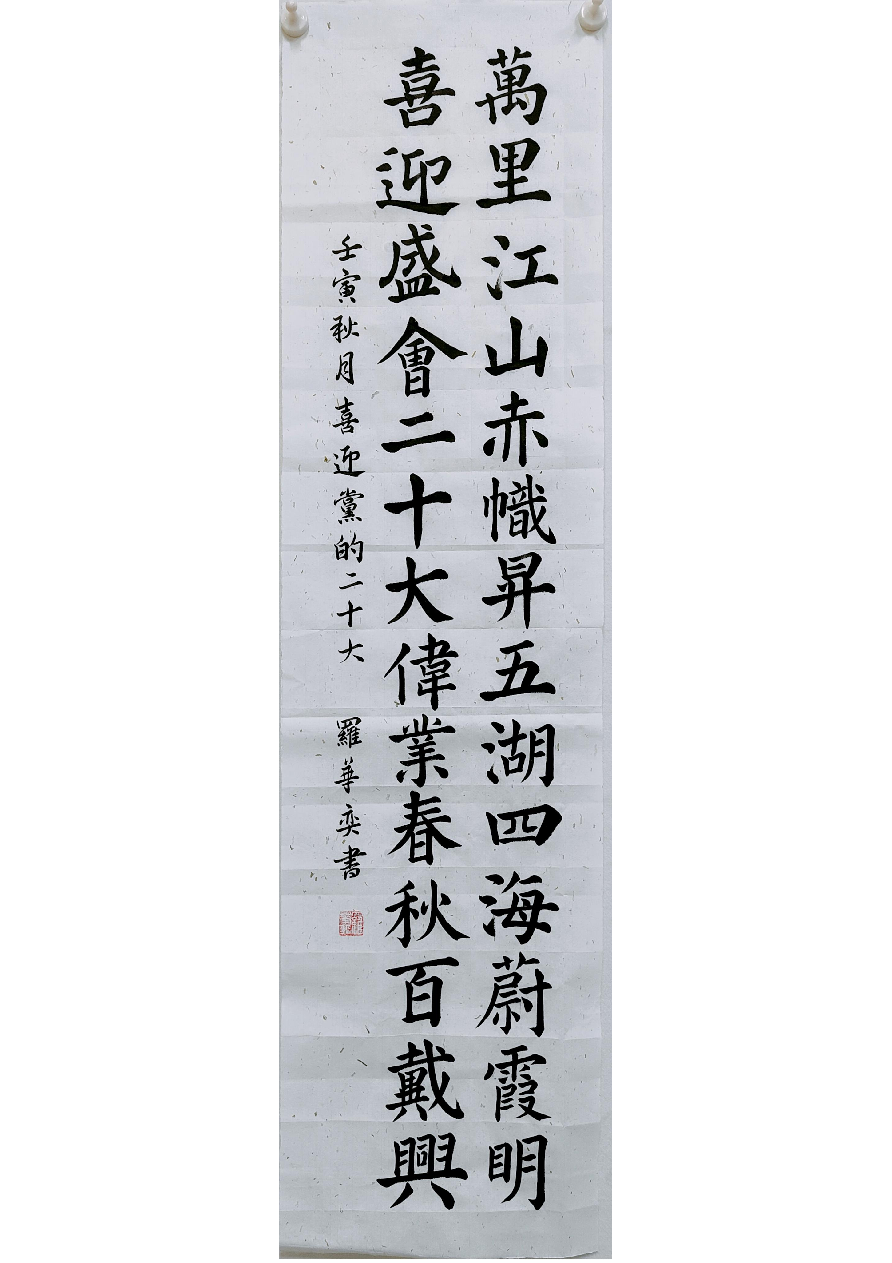 萬里江山赤幟昇五湖四海蔚霞明
喜迎盛會二十大偉業春秋百戴興
壬寅秋月喜迎黨的二十大 羅華奕書